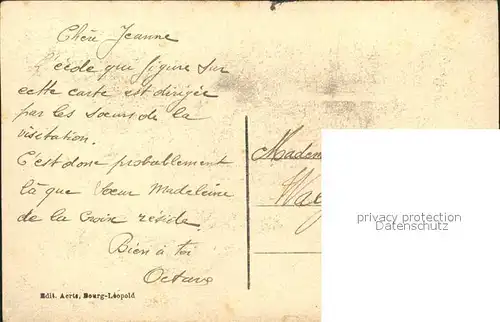 Chère Jeanne
L'école qui figure sur
cette carte est dirigée
par les soeurs de la
visitation.
C'est donc probablement
là que Soeur Madeleine
de la Croix réside
Bien à toi
Octave
Edit. Aerts, Bourg-Léopold
Madem
privacy protection
Datenschutz